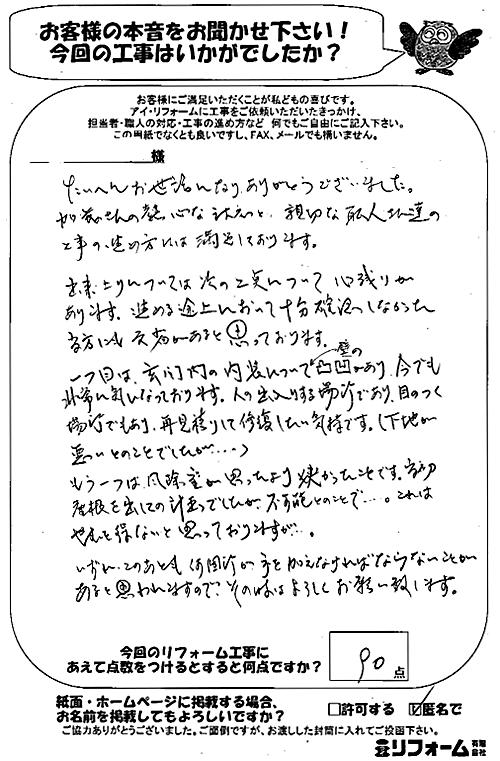 お客様の本音をお聞かせ下さい！
今回の工事はいかがでしたか？
お客様にご満足いただくことが私どもの喜びです。
アイ・リフォームに工事をご依頼いただいたきっかけ、
担当者・職人の対応・工事の進め方など 何でもご自由にご記入下さい。
この用紙でなくとも良いですし、FAX、メールでも構いません。
様
たいへんお世話になりありがとうございました。
さんの熱心な対応と、親切な職人さん達の
工事の進め方には満足しております。
出来上りについては次の二点について心残りが
あります。進める途上において十分確認しなかった
当方にも欠落があると思っております。
一つ目は、玄関内の内装について壁の凸凹があり、今でも
非常に気になっております。人の出入りする場所であり、目のつく
場所でもあり、再見積りして修復したい気持です。(下地が
悪いとのことでしたが・・・)
もう一つは、風除室が思ったより狭かったことです。当初
屋根を出しての計画でしたが、不可能とのことで…。これは
やむを得ないと思っておりますが…。
いずれ、このあとも何箇所か手を加えなければならないことが
あると思われますので、その時はよろしくお願い致します。
今回のリフォーム工事に
あえて点数をつけるとすると何点ですか？
90点
紙面・ホームページに掲載する場合、
お名前を掲載してもよろしいですか？
□許可する ☑匿名で
ご協力ありがとうございました。ご面倒ですが、お渡しした封筒に入れてご投函下さい。
リフォーム有限会社